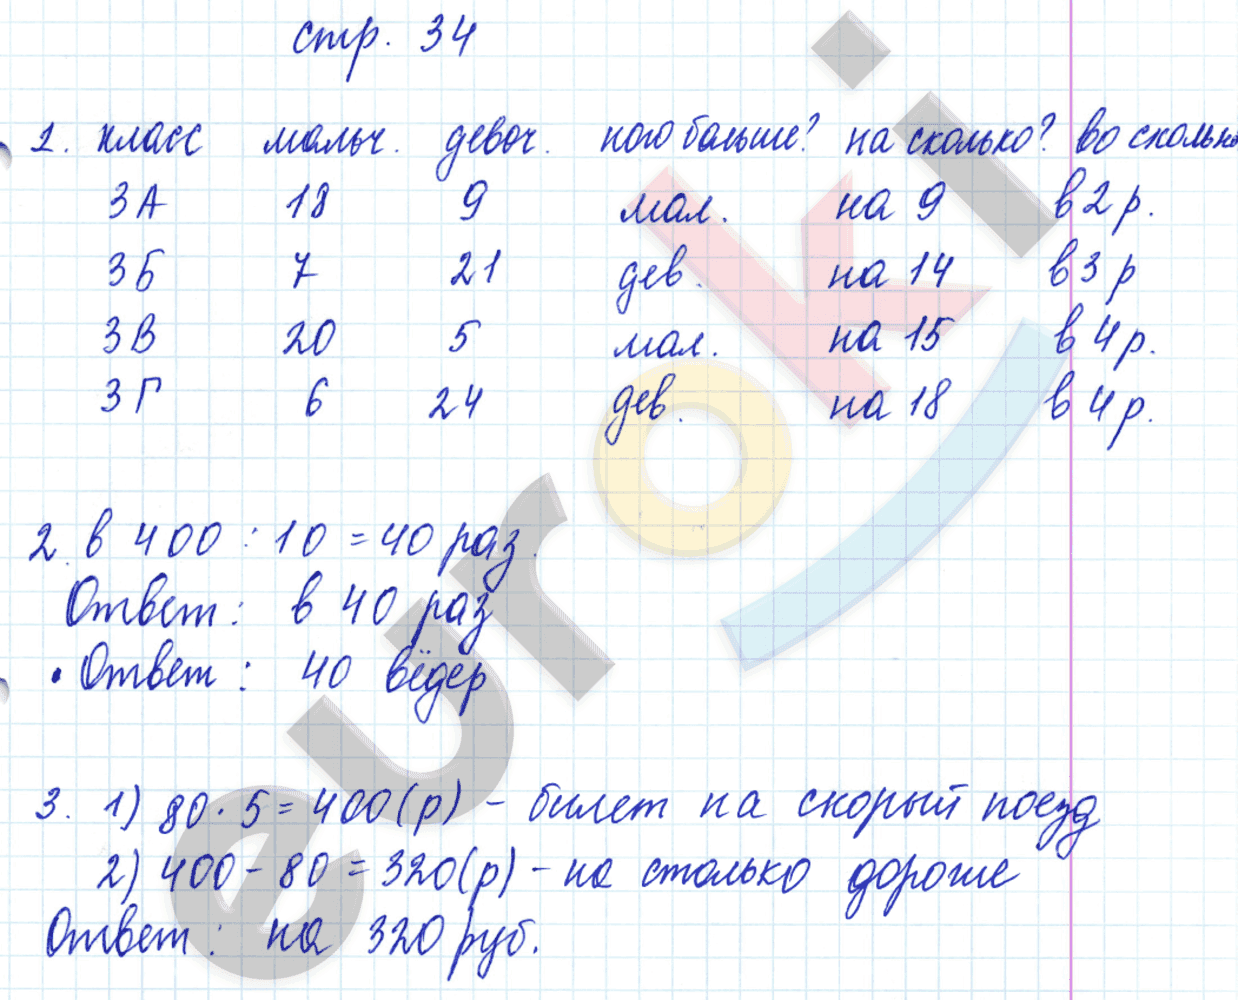 стр. 34
1. класс мальч. девоч. кого больше? на сколько? во сколько
3А 18 9 мал. на 9 в 2 р.
3Б 7 21 дев. на 14 в 3 р
3В 20 5 мал. на 15 в 4 р.
3Г 6 24 дев. на 18 в 4 р.
2. в 400 : 10 = 40 раз.
Ответ: в 40 раз
• Ответ: 40 вёдер
3. 1) 80 · 5 = 400 (р) - билет на скорый поезд
2) 400 - 80 = 320 (р) - на столько дороже
Ответ: на 320 руб.
euroki